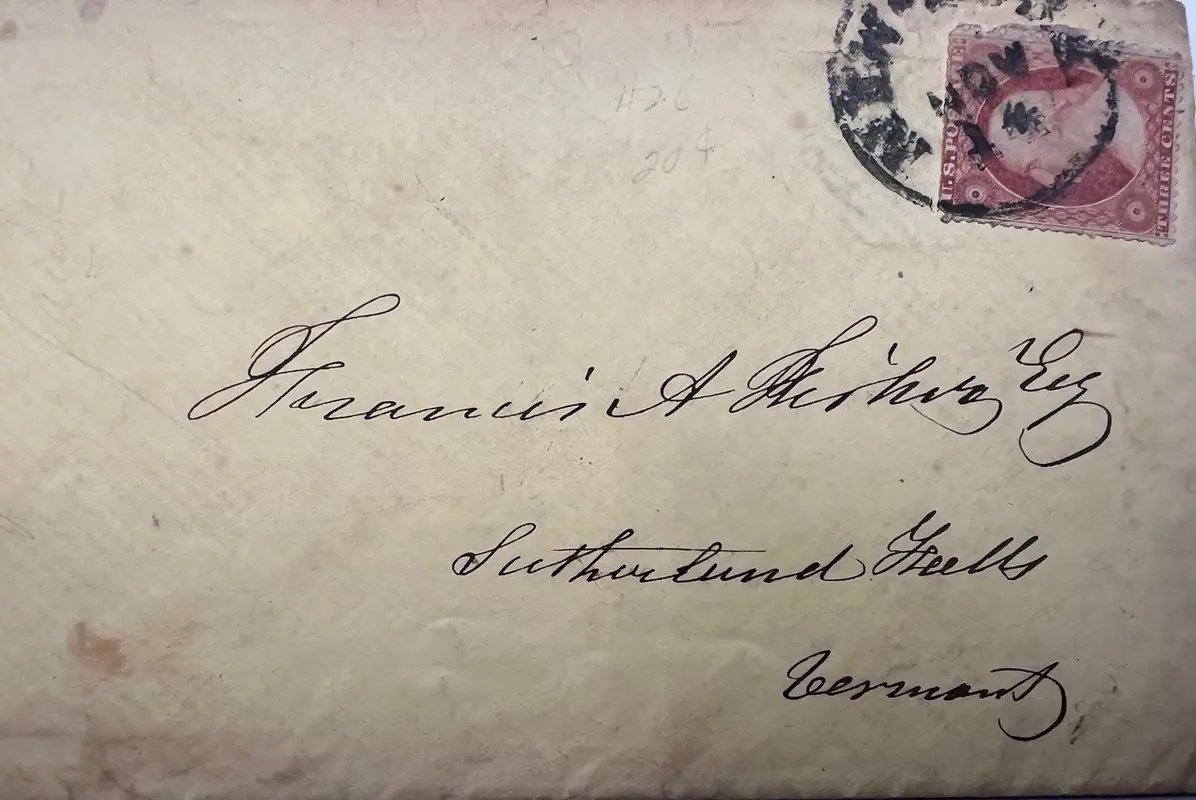 NEW
NOV
U.S. POSTAGE
THREE CENTS
#26
20¢
Francis A Fisher Esq
Sutherland Falls
Vermont